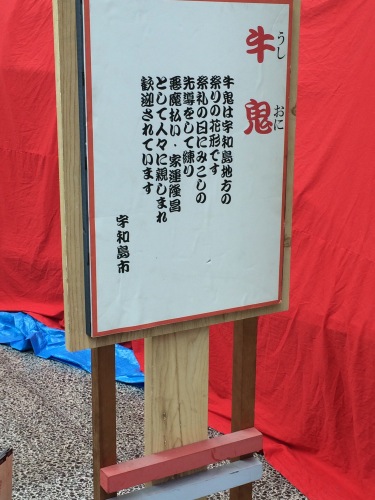 牛鬼
うし おに
牛鬼は宇和島地方の
祭りの花形です
祭礼の日にみこしの
先導をして練り
悪魔払い・家運隆昌
として人々に親しまれ
歓迎されています
宇和島市